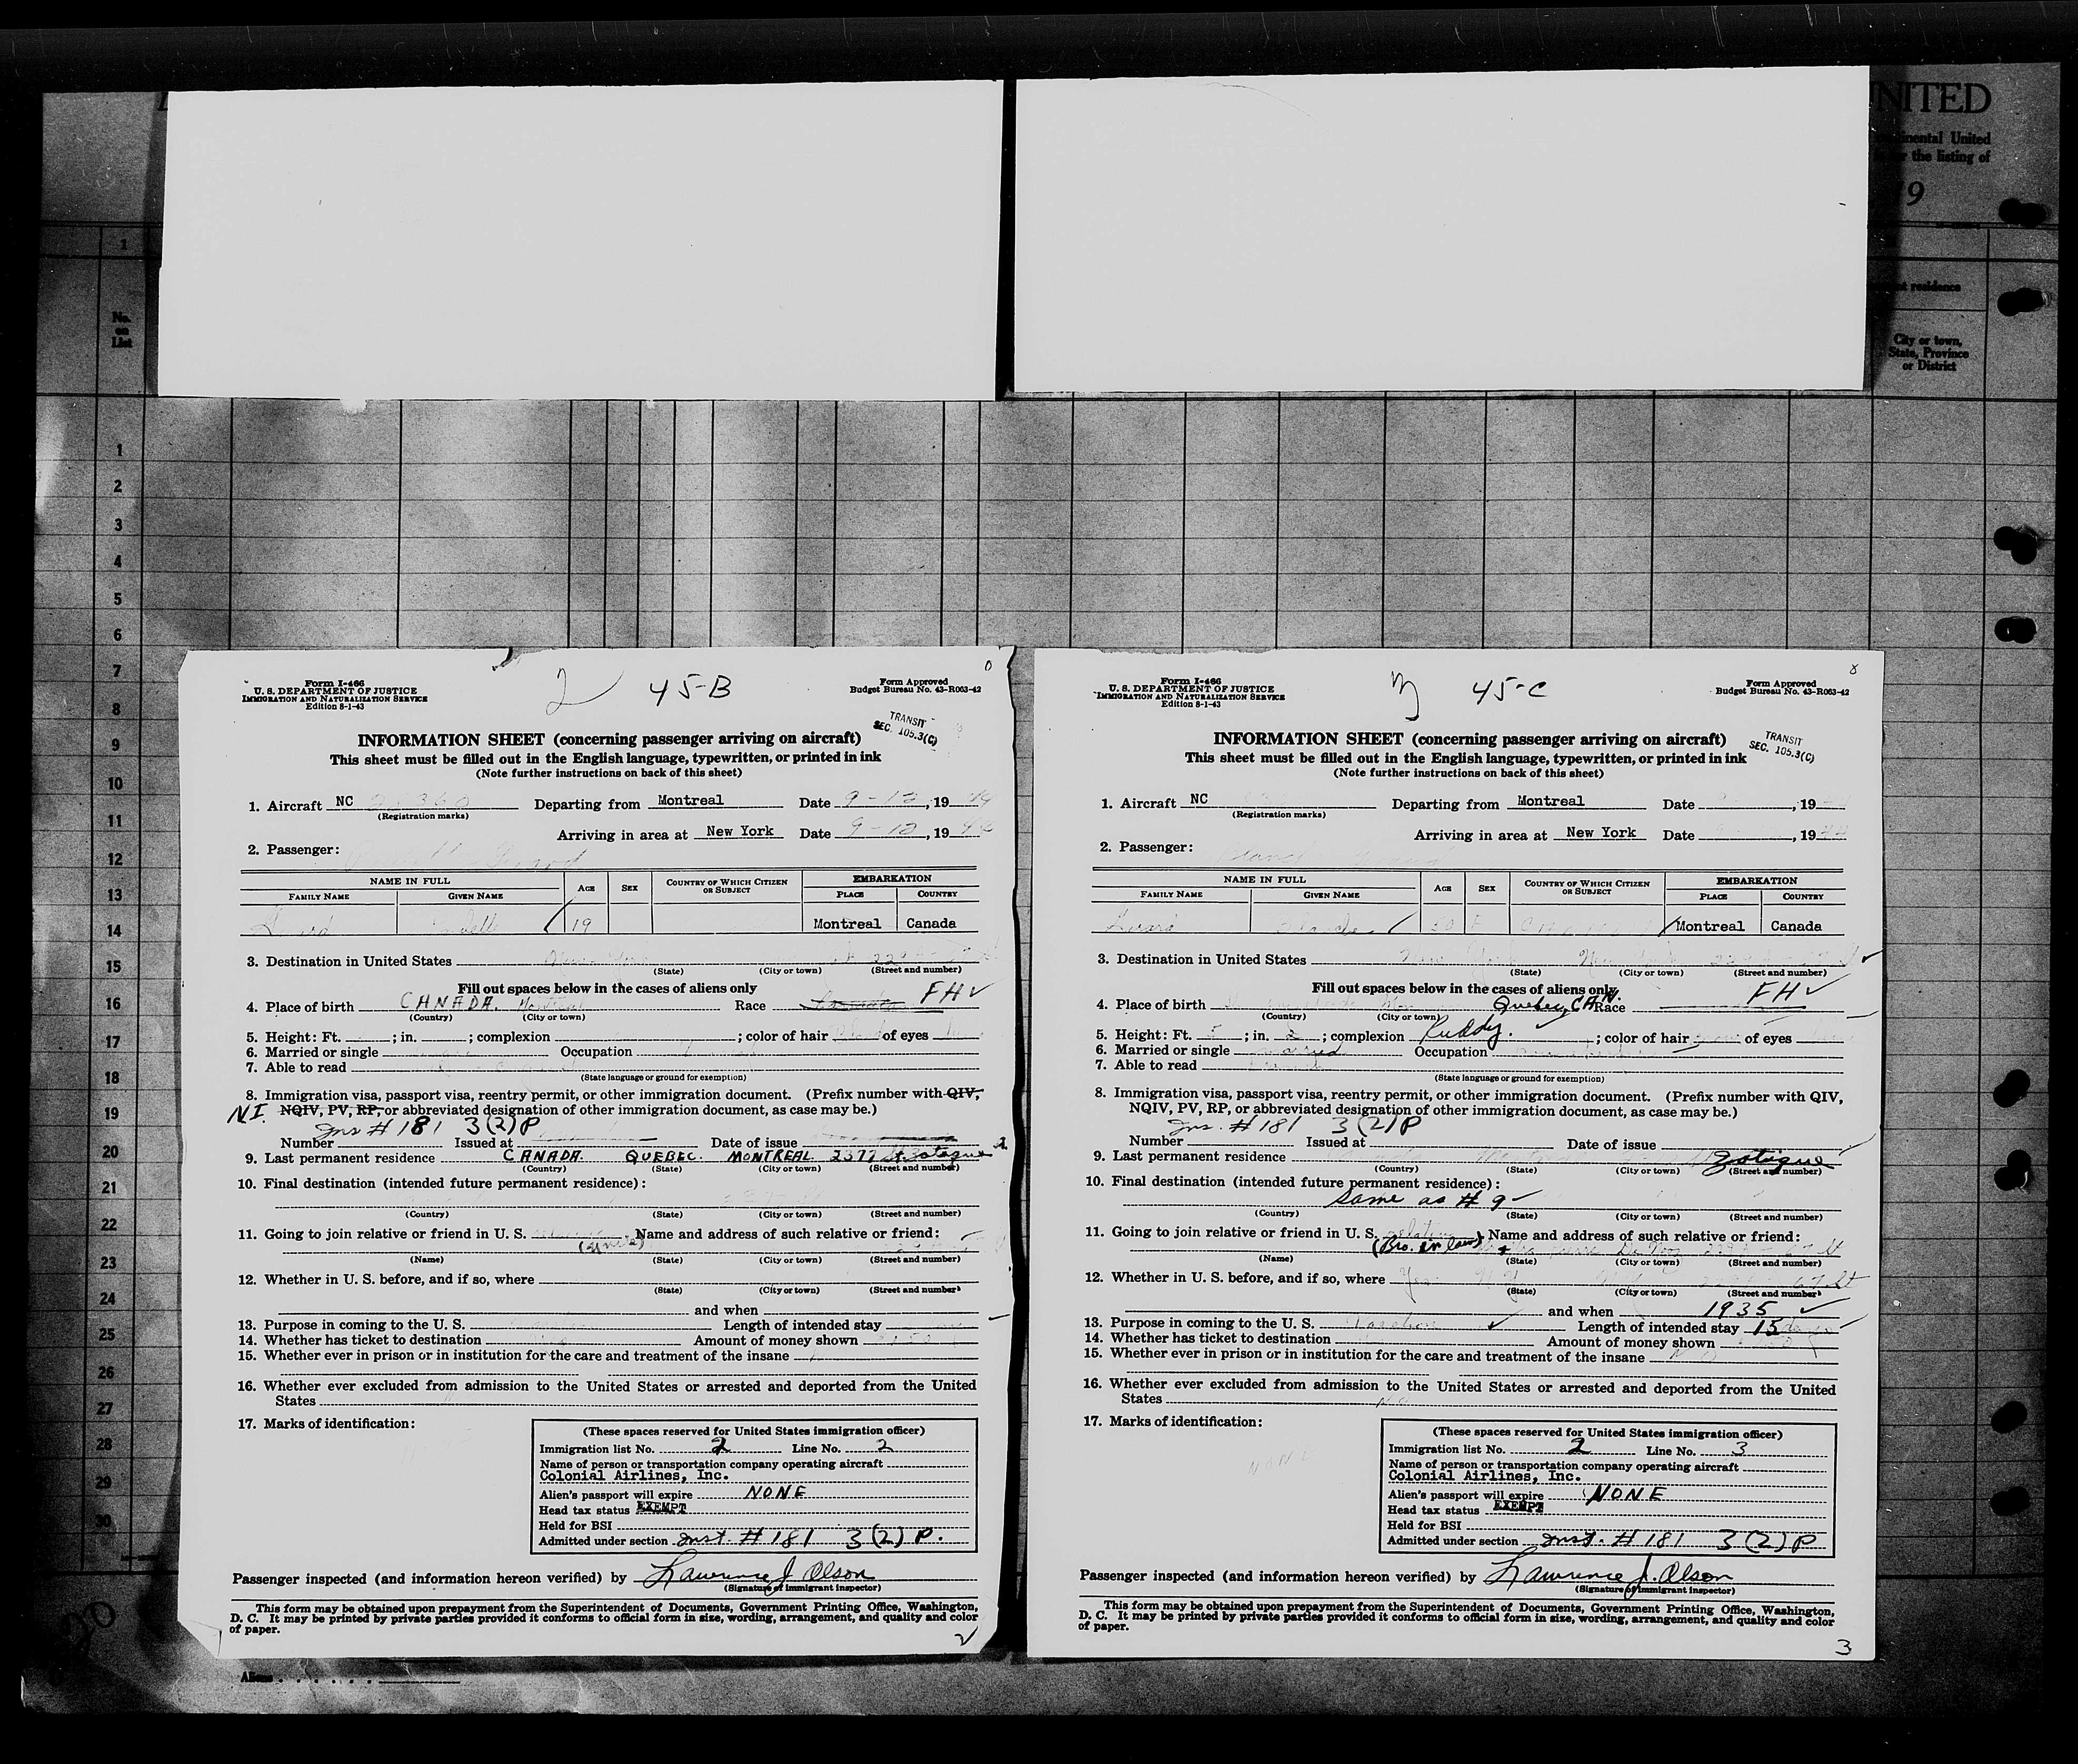 NITED
inental United
the listing of
19
1
No.
on
List
residence
City or town,
State, Province
or District
1
2
3
4
5
6
7
8
9
10
11
12
13
14
15
16
17
18
19
20
21
22
23
24
25
26
27
28
29
30
Form I-466
U. S. DEPARTMENT OF JUSTICE
IMMIGRATION AND NATURALIZATION SERVICE
Edition 8-1-43
2 45-B
Form Approved
Budget Bureau No. 43-R063-42
TRANSIT
SEC. 105.3(C)
INFORMATION SHEET (concerning passenger arriving on aircraft)
This sheet must be filled out in the English language, typewritten, or printed in ink
(Note further instructions on back of this sheet)
1. Aircraft NC Departing from Montreal Date 9-12, 19
(Registration marks)
Arriving in area at New York Date 9-12, 19
2. Passenger:
NAME IN FULL AGE SEX COUNTRY OF WHICH CITIZEN OR SUBJECT EMBARKATION
FAMILY NAME GIVEN NAME PLACE COUNTRY
19 Montreal Canada
3. Destination in United States
(State) (City or town) (Street and number)
Fill out spaces below in the cases of aliens only
4. Place of birth CANADA. Montreal Race FH ✓
(Country) (City or town)
5. Height: Ft. ; in. ; complexion ; color of hair of eyes
6. Married or single Occupation
7. Able to read
(State language or ground for exemption)
8. Immigration visa, passport visa, reentry permit, or other immigration document. (Prefix number with QIV,
N.I. NQIV, PV, RP, or abbreviated designation of other immigration document, as case may be.)
Ins # 181 3(2)P
Number Issued at Date of issue
9. Last permanent residence CANADA. QUEBEC. MONTREAL 2377
(Country) (State) (City or town) (Street and number)
10. Final destination (intended future permanent residence):
(Country) (State) (City or town) (Street and number)
11. Going to join relative or friend in U. S. Name and address of such relative or friend:
(Name) (State) (City or town) (Street and number)
12. Whether in U. S. before, and if so, where
(State) (City or town) (Street and number)
and when
13. Purpose in coming to the U. S. Length of intended stay
14. Whether has ticket to destination Amount of money shown
15. Whether ever in prison or in institution for the care and treatment of the insane
16. Whether ever excluded from admission to the United States or arrested and deported from the United
States
17. Marks of identification:
(These spaces reserved for United States immigration officer)
Immigration list No. 2 Line No. 2
Name of person or transportation company operating aircraft
Colonial Airlines, Inc.
Alien's passport will expire NONE
Head tax status EXEMPT
Held for BSI
Admitted under section Inst # 181 3(2) P.
Passenger inspected (and information hereon verified) by Lawrence J. Olson
(Signature of immigrant inspector)
This form may be obtained upon prepayment from the Superintendent of Documents, Government Printing Office, Washington,
D. C. It may be printed by private parties provided it conforms to official form in size, wording, arrangement, and quality and color
of paper.
2
Form I-466
U. S. DEPARTMENT OF JUSTICE
IMMIGRATION AND NATURALIZATION SERVICE
Edition 8-1-43
3 45-C
Form Approved
Budget Bureau No. 43-R063-42
TRANSIT
SEC. 105.3(C)
INFORMATION SHEET (concerning passenger arriving on aircraft)
This sheet must be filled out in the English language, typewritten, or printed in ink
(Note further instructions on back of this sheet)
1. Aircraft NC Departing from Montreal Date , 19
(Registration marks)
Arriving in area at New York Date , 19
2. Passenger:
NAME IN FULL AGE SEX COUNTRY OF WHICH CITIZEN OR SUBJECT EMBARKATION
FAMILY NAME GIVEN NAME PLACE COUNTRY
Montreal Canada
3. Destination in United States New York
(State) (City or town) (Street and number)
Fill out spaces below in the cases of aliens only
4. Place of birth Quebec, CAN. Race FH ✓
(Country) (City or town)
5. Height: Ft. 5 ; in. 2 ; complexion Ruddy. ; color of hair of eyes
6. Married or single married Occupation
7. Able to read
(State language or ground for exemption)
8. Immigration visa, passport visa, reentry permit, or other immigration document. (Prefix number with QIV,
NQIV, PV, RP, or abbreviated designation of other immigration document, as case may be.)
Ins. # 181 3(2)P
Number Issued at Date of issue
9. Last permanent residence Zotique
(Country) (State) (City or town) (Street and number)
10. Final destination (intended future permanent residence):
Same as # 9
(Country) (State) (City or town) (Street and number)
11. Going to join relative or friend in U. S. Name and address of such relative or friend:
(Bro. in law)
(Name) (State) (City or town) (Street and number)
12. Whether in U. S. before, and if so, where Yes 67 St
(State) (City or town) (Street and number)
and when 1935 ✓
13. Purpose in coming to the U. S. Vacation ✓ Length of intended stay 15 days
14. Whether has ticket to destination Amount of money shown
15. Whether ever in prison or in institution for the care and treatment of the insane No
16. Whether ever excluded from admission to the United States or arrested and deported from the United
States No
17. Marks of identification:
NONE
(These spaces reserved for United States immigration officer)
Immigration list No. 2 Line No. 3
Name of person or transportation company operating aircraft
Colonial Airlines, Inc.
Alien's passport will expire NONE
Head tax status EXEMPT
Held for BSI
Admitted under section Inst. # 181 3(2)P
Passenger inspected (and information hereon verified) by Lawrence J. Olson
(Signature of immigrant inspector)
This form may be obtained upon prepayment from the Superintendent of Documents, Government Printing Office, Washington,
D. C. It may be printed by private parties provided it conforms to official form in size, wording, arrangement, and quality and color
of paper.
3
Aliens